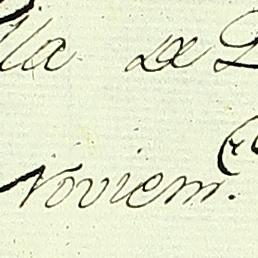 lla de
Noviem.